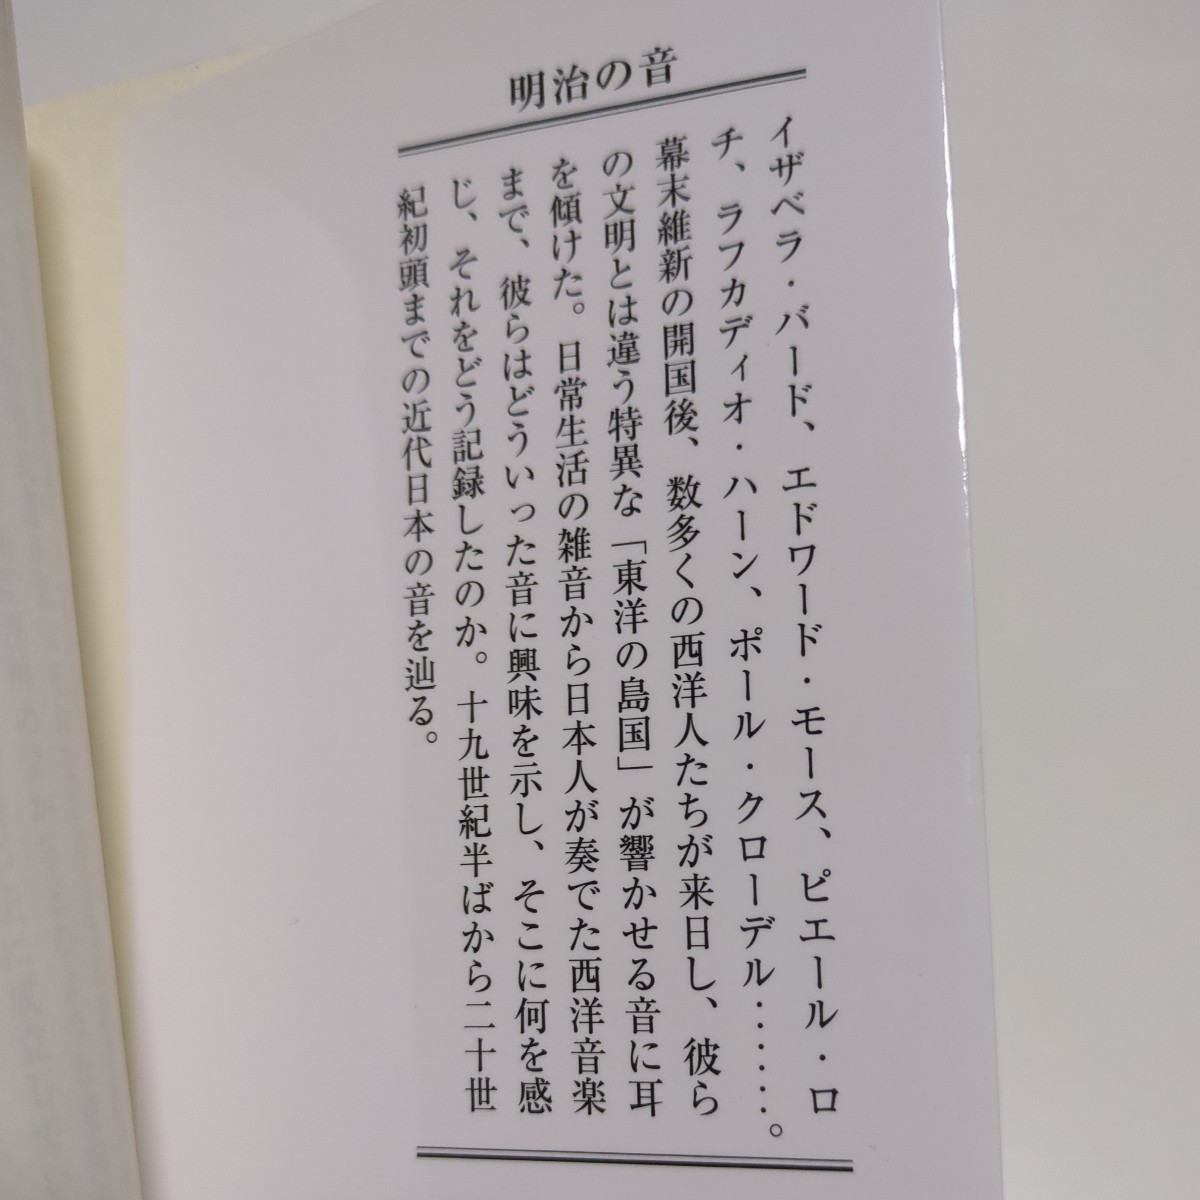 明治の音
イザベラ・バード、エドワード・モース、ピエール・ロ
チ、ラフカディオ・ハーン、ポール・クローデル……。
幕末維新の開国後、数多くの西洋人たちが来日し、彼ら
の文明とは違う特異な「東洋の島国」が響かせる音に耳
を傾けた。日常生活の雑音から日本人が奏でた西洋音楽
まで、彼らはどういった音に興味を示し、そこに何を感
じ、それをどう記録したのか。十九世紀半ばから二十世
紀初頭までの近代日本の音を辿る。